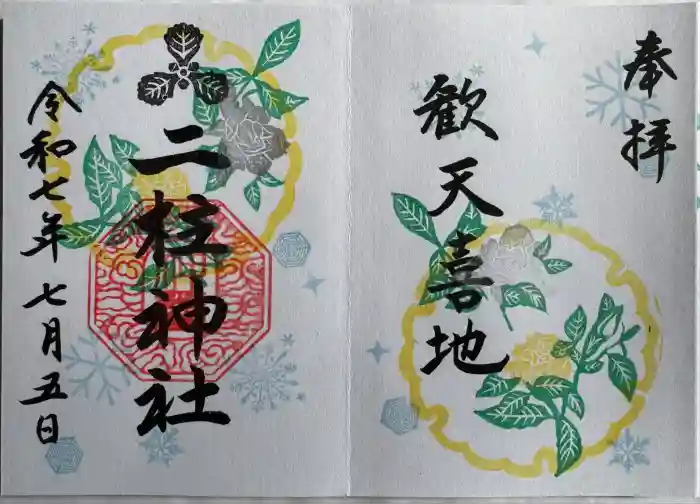 奉拝
歓天喜地
二柱神社
令和七年七月五日